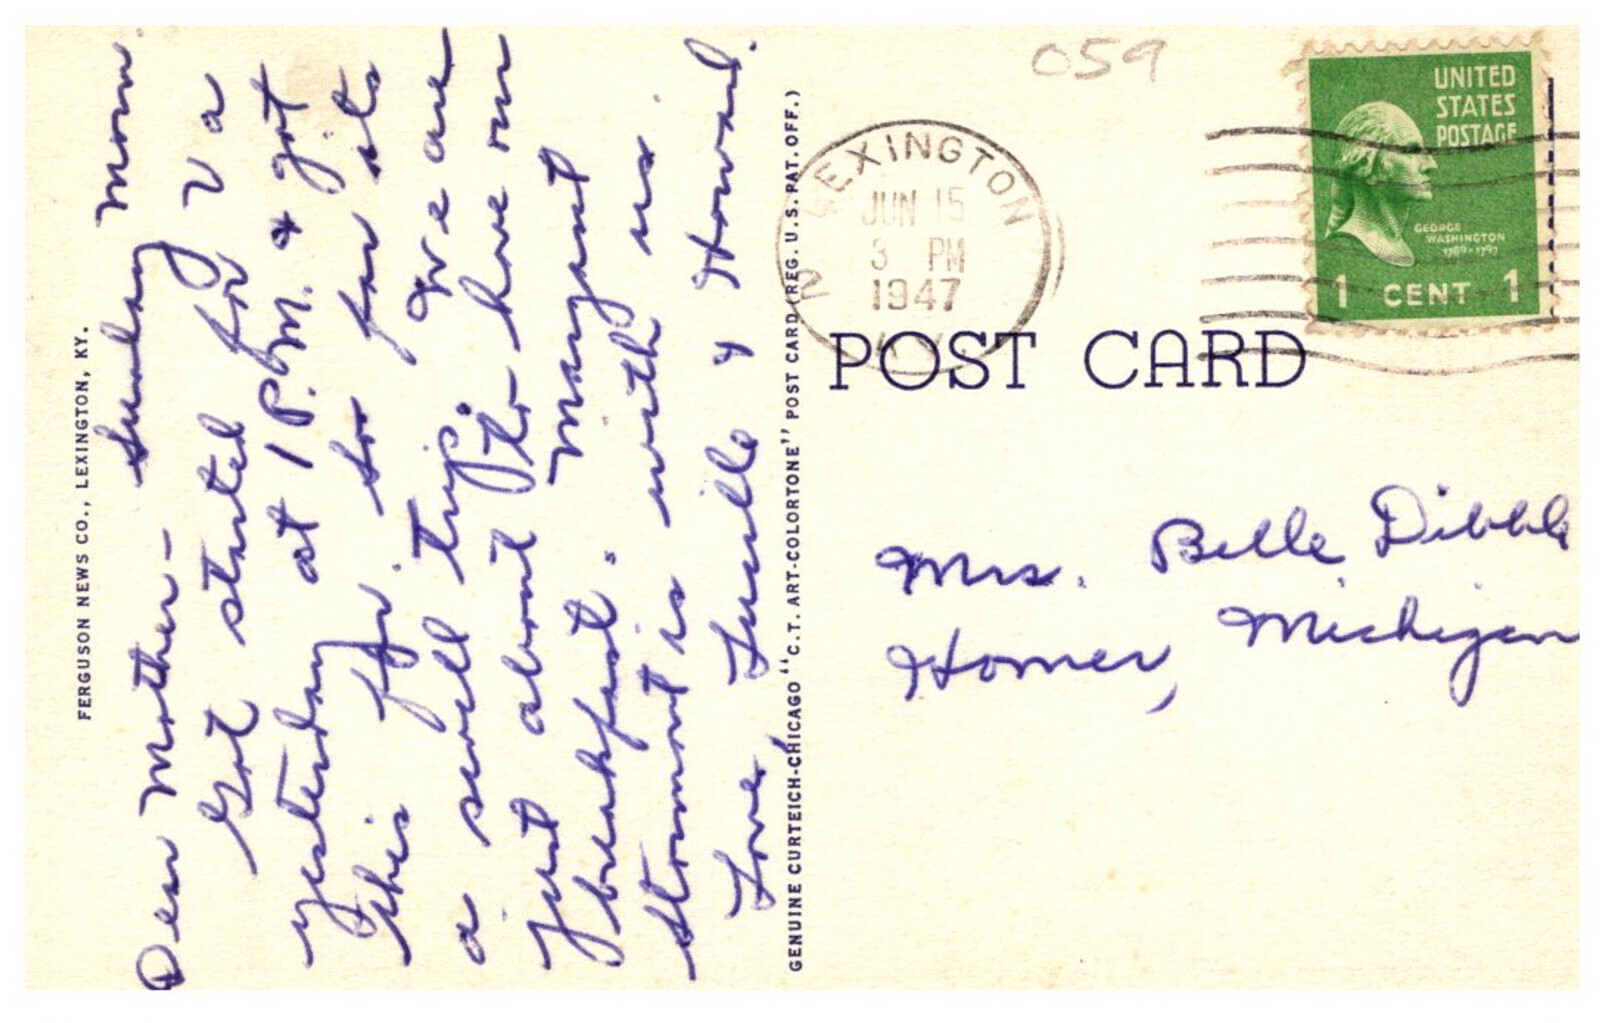 FERGUSON NEWS CO., LEXINGTON, KY.
Dear Mother- Sunday Morn.
Got started for Va
yesterday at 1 P.M. & got
this far. So far its
a swell trip. We are
just about to have our
breakfast. Margaret
Stommont is with us.
Love, Lucille & Howard.
GENUINE CURTEICH-CHICAGO "C.T. ART-COLORTONE" POST CARD (REG. U.S. PAT. OFF.)
059
LEXINGTON
JUN 15
3 PM
1947
2
KY.
UNITED
STATES
POSTAGE
GEORGE
WASHINGTON
1789-1797
1 CENT 1
POST CARD
Mrs. Belle Dibble
Homer, Michigan